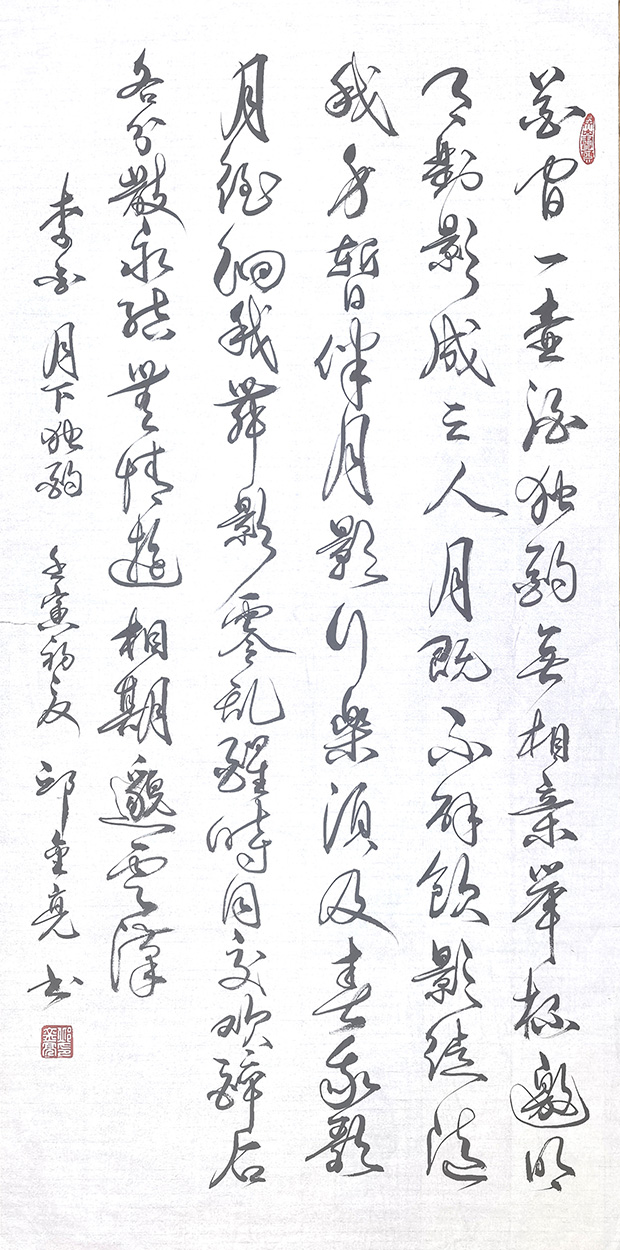 花间一壶酒独酌無相亲举杯邀明
月对影成三人月既不解飲影徒随
我身暫伴月影行樂须及春我歌
月徘徊我舞影零乱醒時同交欢醉后
各分散永结無情遊相期邈雲漢
李白 月下独酌 壬寅初夏 邱金亮 书